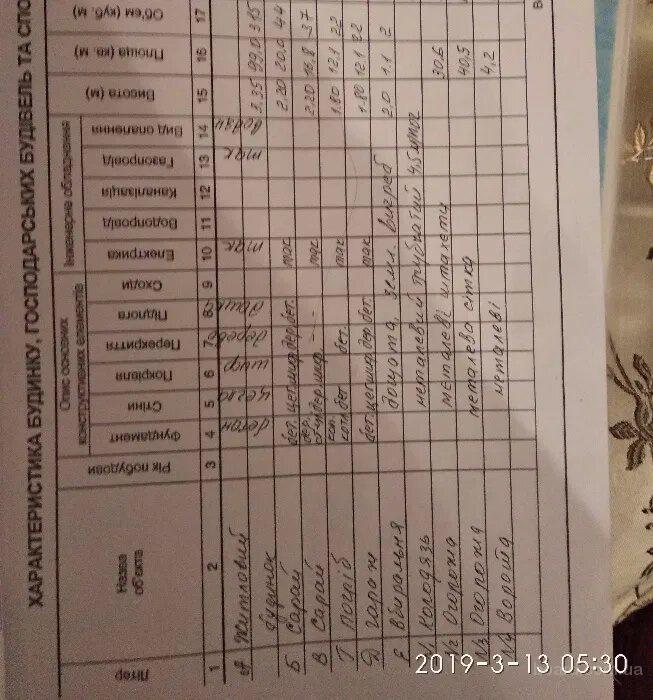 ХАРАКТЕРИСТИКА БУДИНКУ, ГОСПОДАРСЬКИХ БУДІВЕЛЬ ТА СПО
Літер
Назва об'єкта
Рік побудови
Опис основних конструктивних елементів
Фундамент
Стіни
Покрівля
Перекриття
Підлога
Сходи
Інженерне обладнання
Електрика
Водопровід
Каналізація
Газопровід
Вид опалення
Висота (м)
Площа (кв. м)
Об'єм (куб. м)
1 2 3 4 5 6 7 8 9 10 11 12 13 14 15 16 17
А Житловий бетон цегла шифер дерево дошка так так водян 3,35 99,0 315
будинок
Б Сарай бет. цегл шиф дер бет. так 2.20 20,0 44
В Сарай дер. шиф так 2.20 16,8 37
Г Погріб коп. бет. бет. так 1.80 12.1 22
Д гараж бет. цегл шиф дер. бет. так 1.80 12.1 22
Е Вбиральня дощата, земл. вигреб 2,0 1.1 2
Колодязь металевий трубчатий 4,5
№2 Огорожа металеві штахети 30,6
№3 Огорожа металева сітка 40,5
№4 Ворота металеві 4,2
2019-3-13 05:30